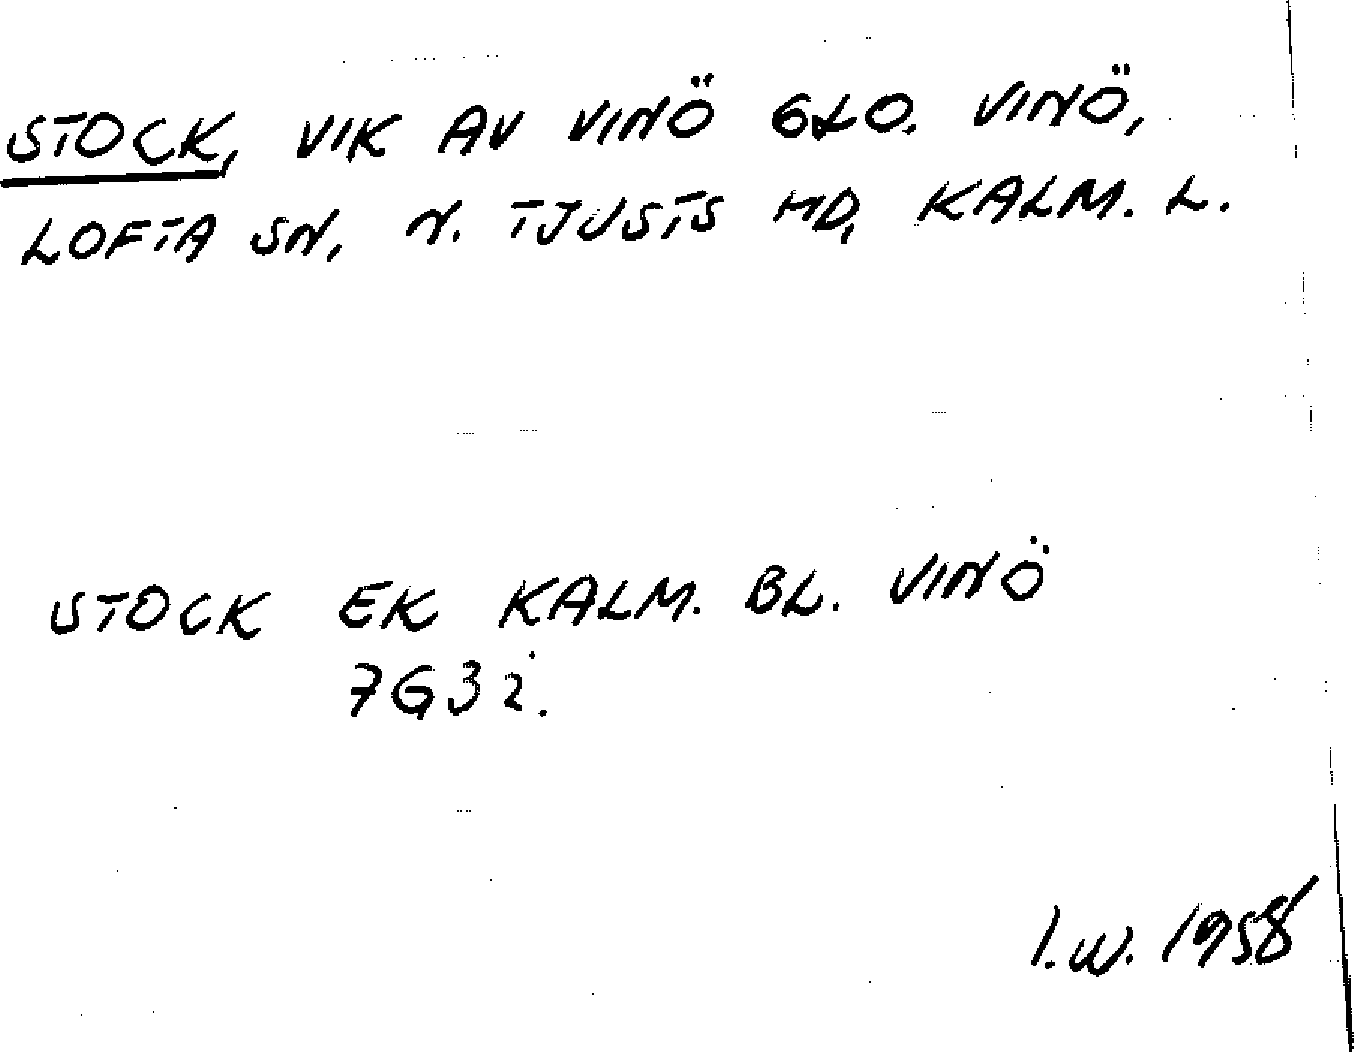 STOCK, VIK AV VINÖ GLO. VINÖ,
LOFTA SN, N. TJUSTS HD, KALM. L.
STOCK EK KALM. BL. VINÖ
7G3i.
I.W. 1958